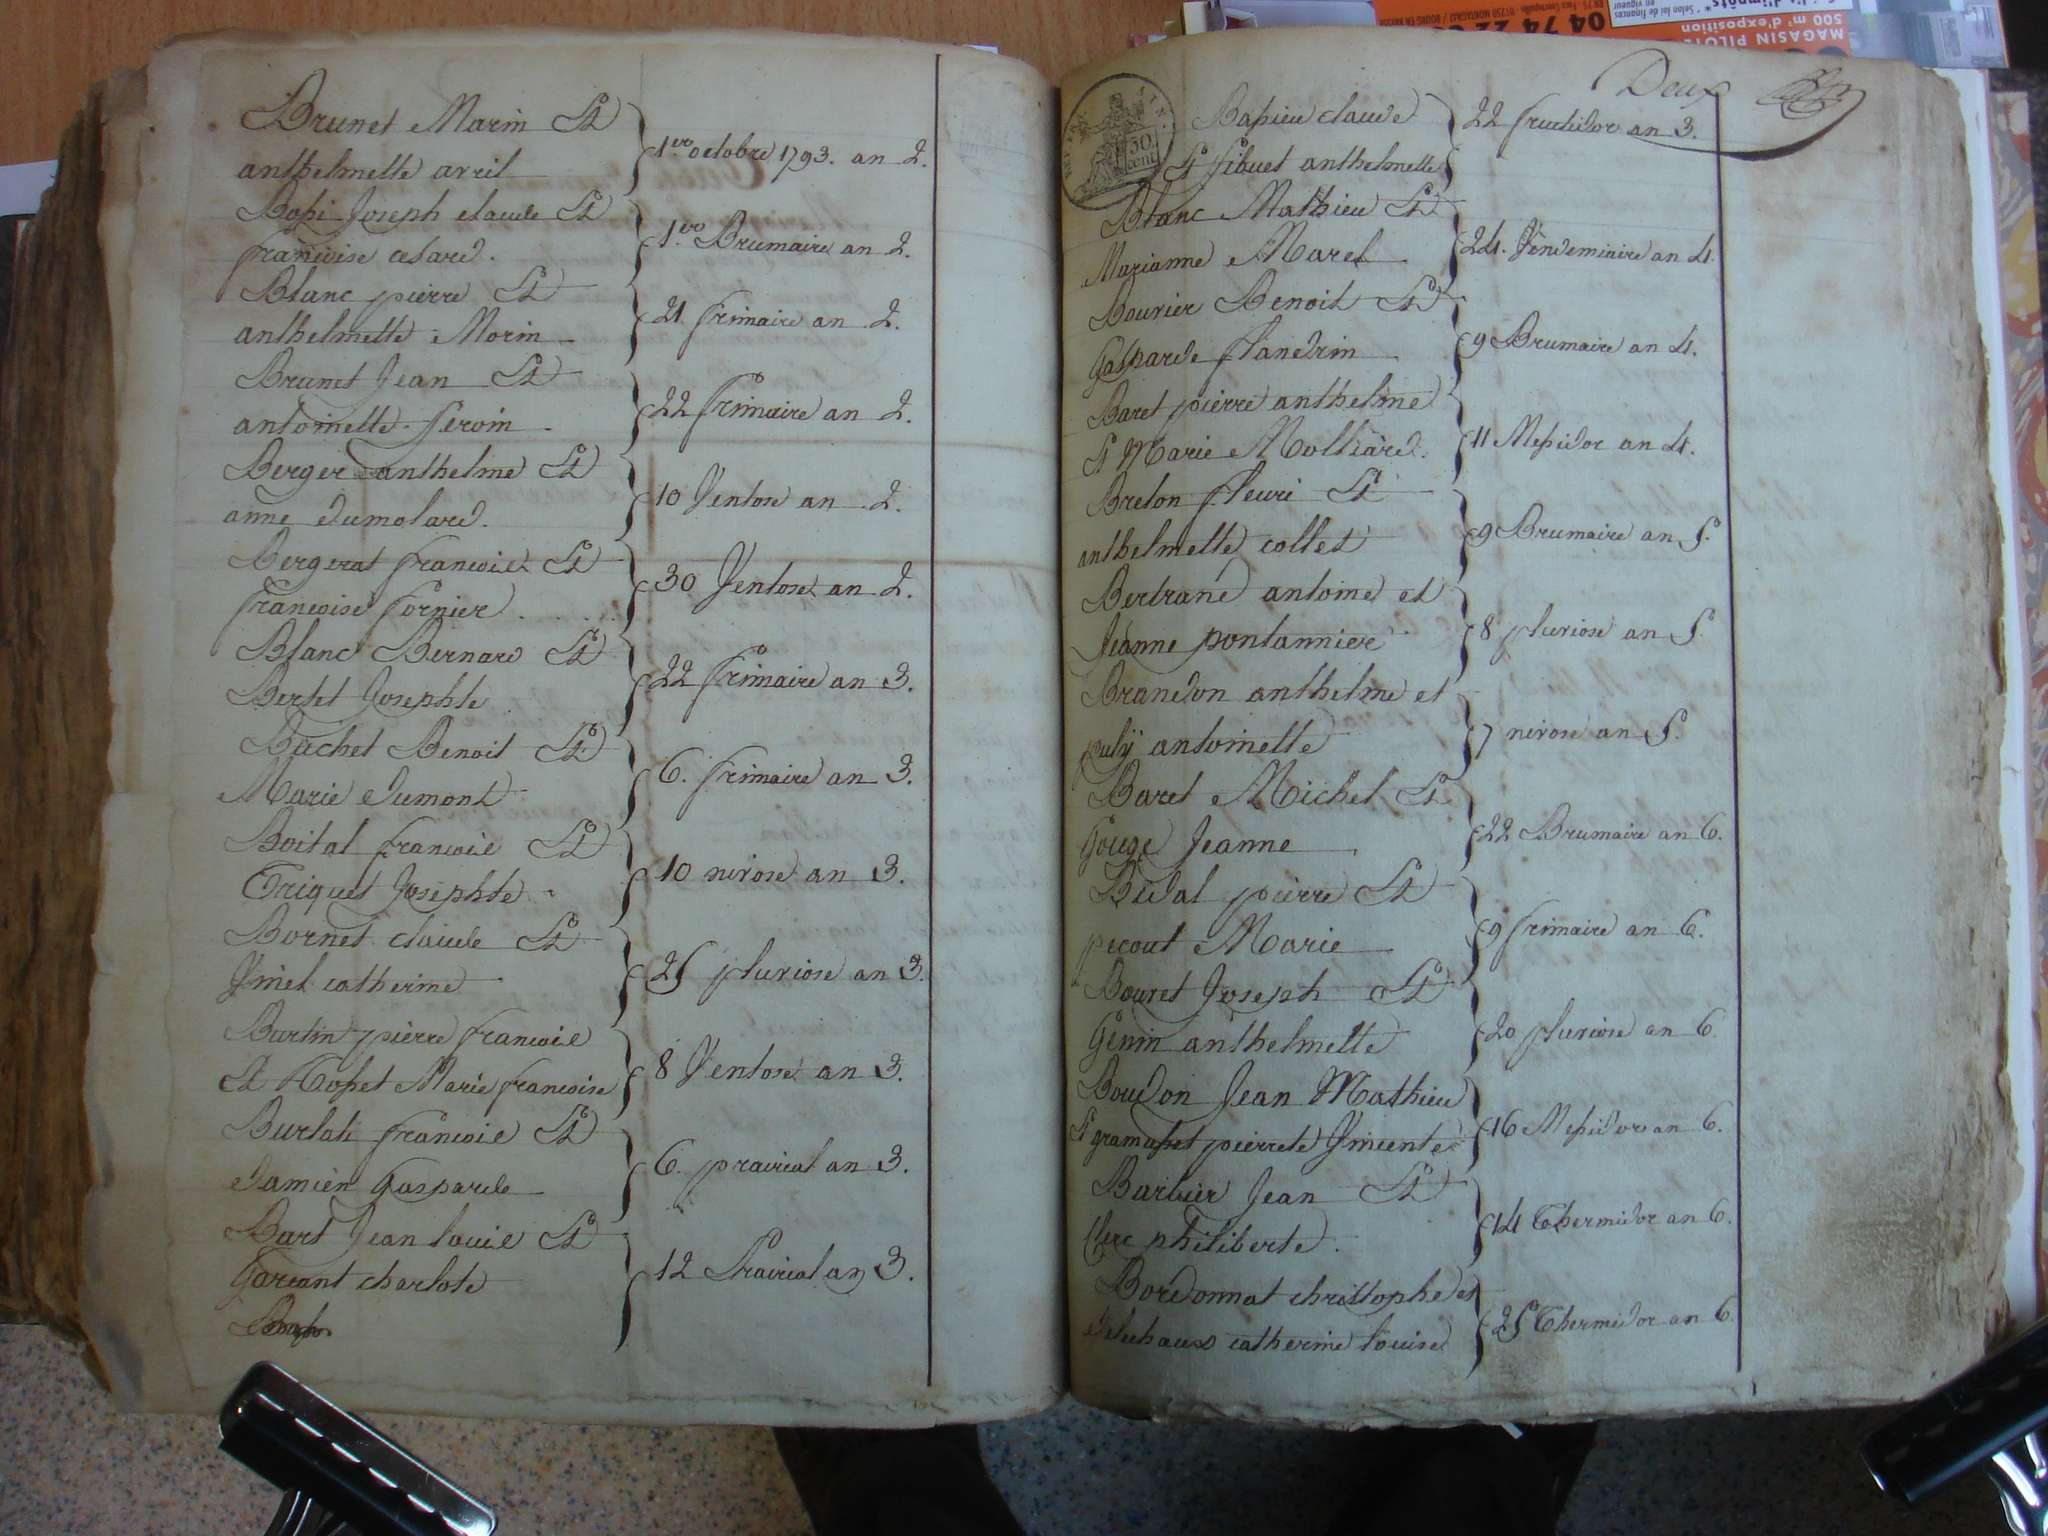 Brunet Marin Et
anthelmette avril
1er octobre 1793. an 2.
Bossi Joseph claude Et
françoise
1er Brumaire an 2.
Blanc pierre Et
anthelmette Morin
21 frimaire an 2.
Brunet Jean Et
antoinette feroin
22 frimaire an 2.
Berger anthelme Et
anne dumolard.
10 Ventose an 2.
Bergerat francois Et
francoise fornier
30 Ventose an 2.
Blanc Bernard Et
Bertet Josephte
22 frimaire an 3.
Bachet Benoit Et
Marie dumont
6. frimaire an 3.
Boital francois Et
Triquet Josephte
10 nivose an 3.
Bornet claude Et
catherine
25 pluviose an 3.
Burtin pierre francois
Et Rosset Marie francoise
8 Ventose an 3.
Burlati francois Et
damien Gasparde
6. prairial an 3.
Bart Jean louis Et
charlote
12 Prairial an 3.
Deux
50 cent
Bassieu claude
Et Sibuet anthelmette
22 fructidor an 3.
Blanc Mathieu Et
Marianne Maret
24. Vendemiaire an 4.
Bouvier Benoit Et
Gasparde flandrin
9 Brumaire an 4.
Baret pierre anthelme
Et Marie Molliard.
11 Messidor an 4.
Breton fleuri Et
anthelmette collet
9 Brumaire an 5.
Bertrand antoine et
Jeanne pontannier
8 pluviose an 5.
Brandon anthelme et
puly antoinette
7 nivose an 5.
Baret Michel Et
Gouge Jeanne
22 Brumaire an 6.
Bidal pierre Et
picout Marie
9 frimaire an 6.
Bouret Joseph Et
Genin anthelmette
20 pluviose an 6.
Boudon Jean Mathieu
Et gramusset pierrete Vincente
16 Messidor an 6.
Barbier Jean Et
Clerc philiberte.
14 Thermidor an 6.
Bordonnat christophe et
catherine louise
25 Thermidor an 6.
MAGASIN PILOTE
500 m² d'exposition
04 74 22
* Selon loi de finances
en vigueur